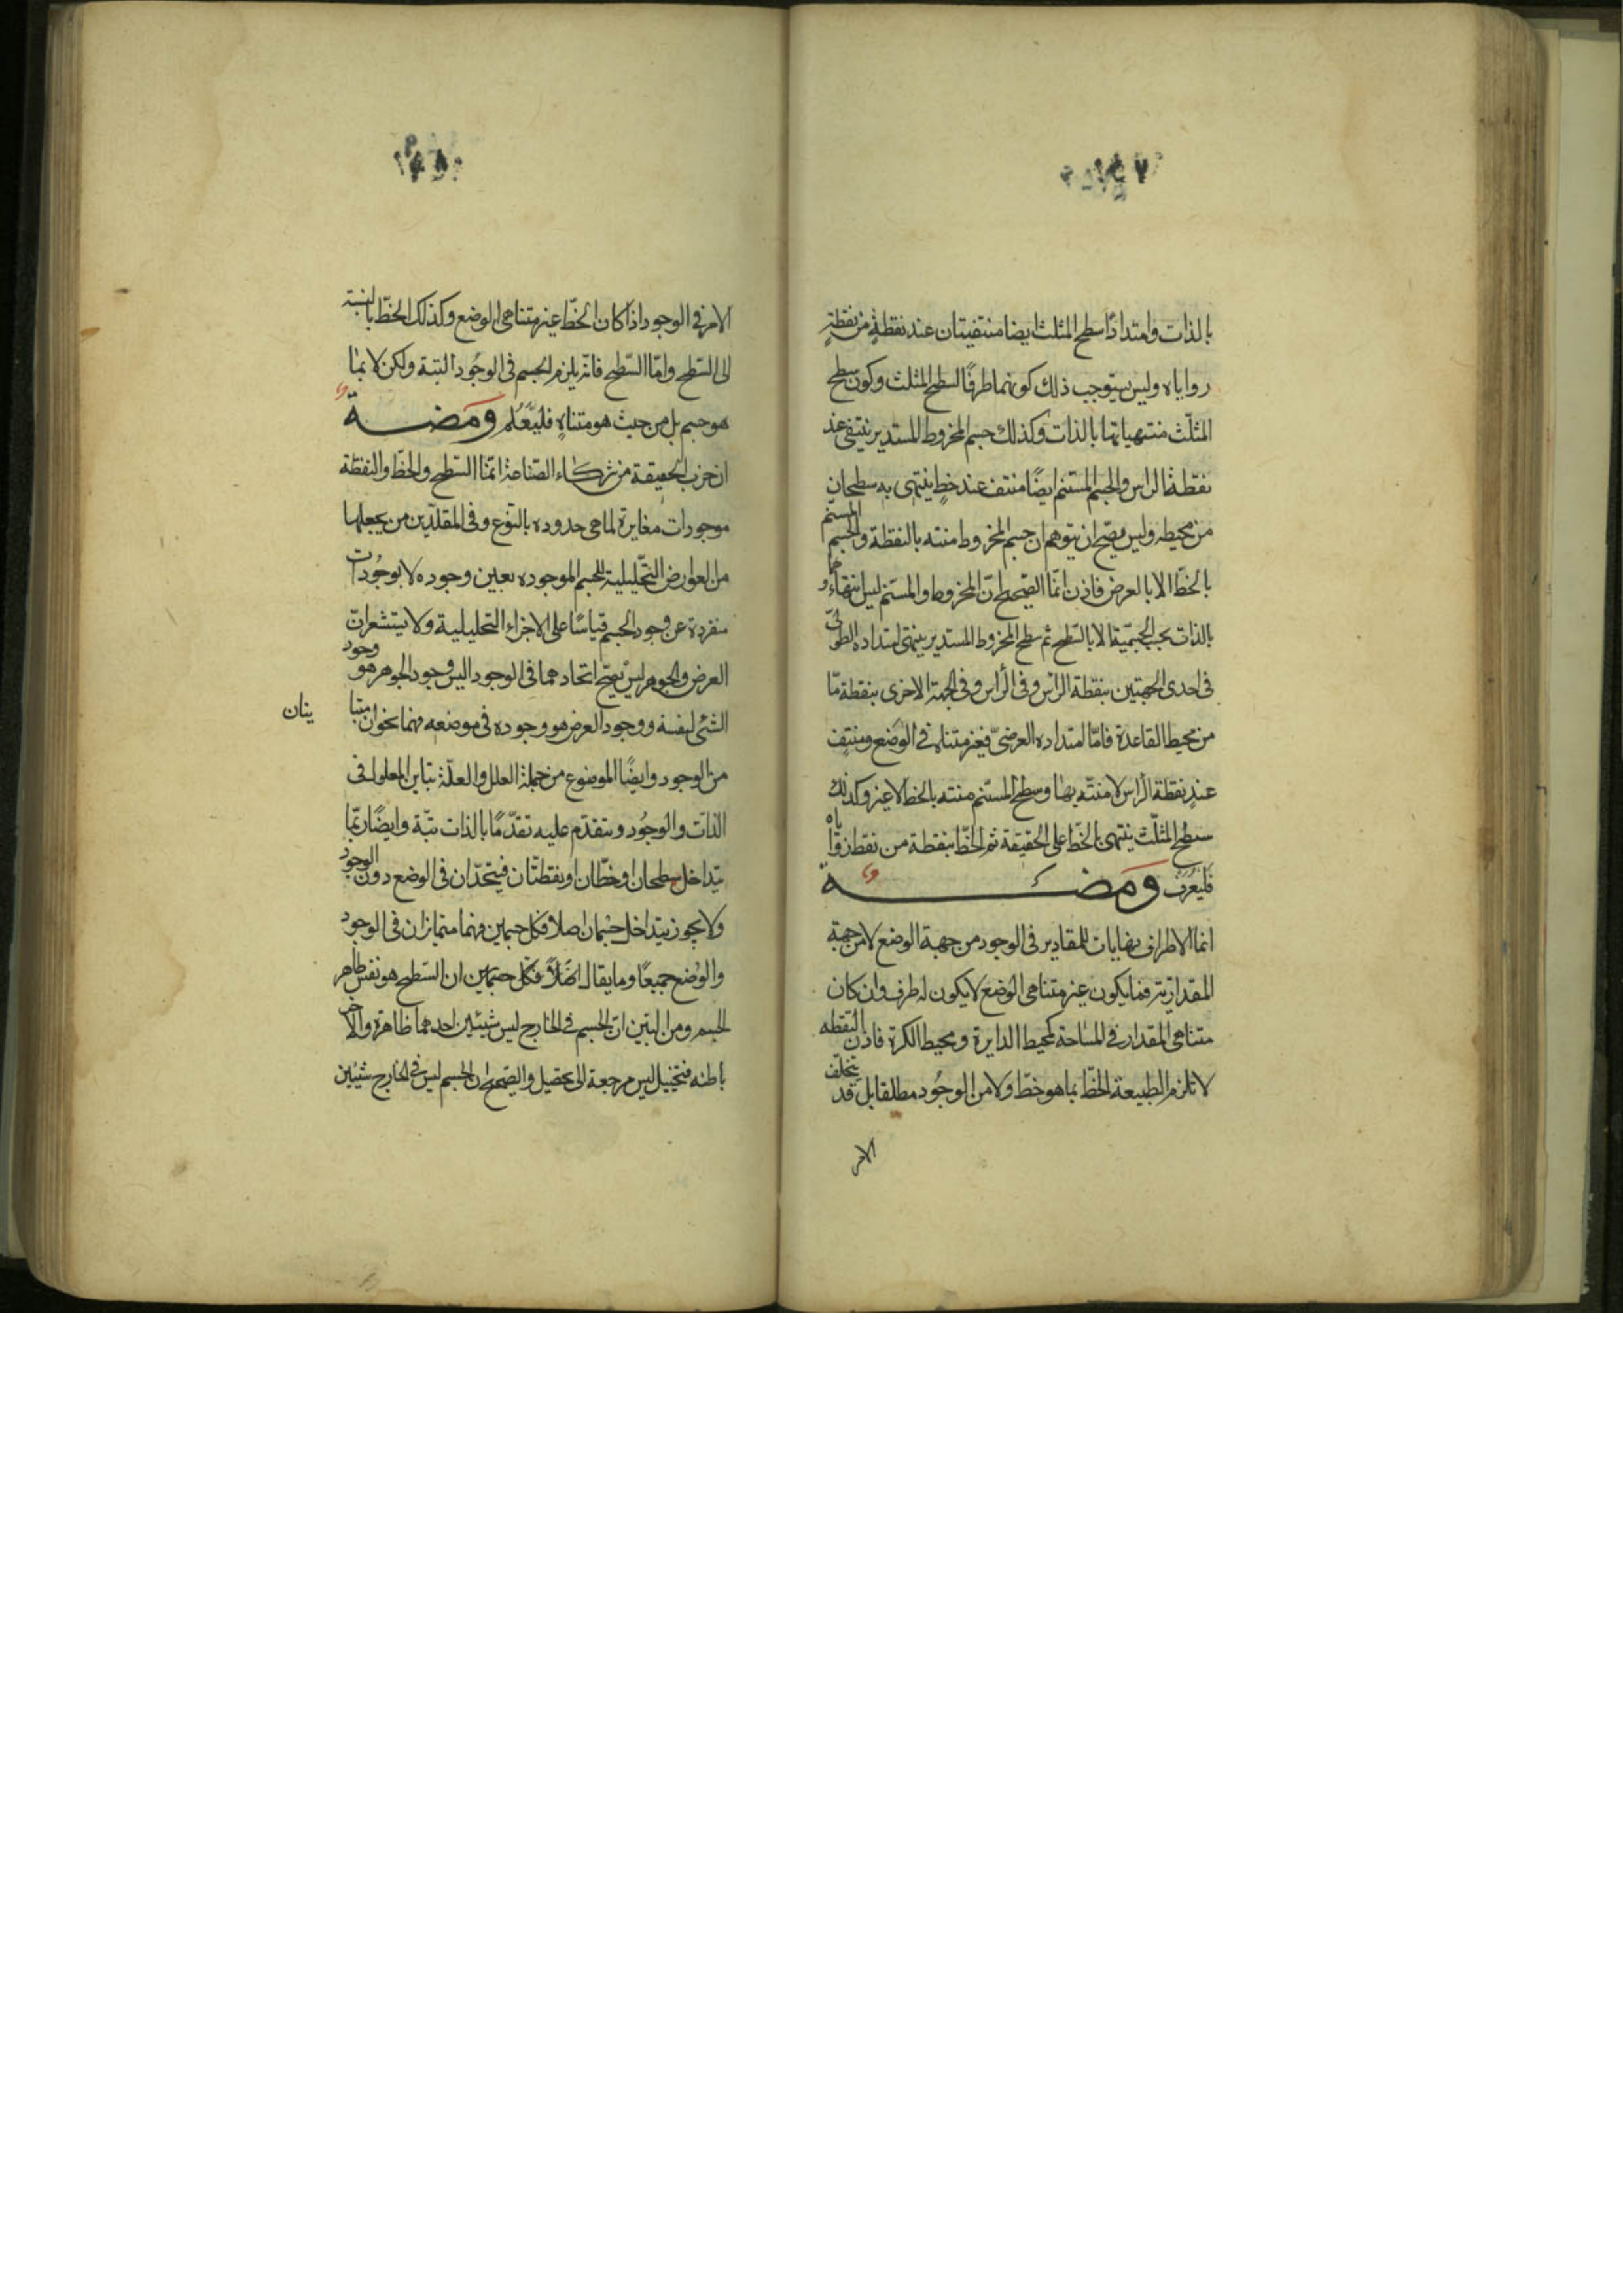 بالذات وامتدادا سطح المثلث ايضا منتفيتان عند نقطةٍ من نقطةِ
زواياه وليس يستوجب ذلك كونهما طرفًا لسطح المثلث وكون سطح
المثلّث منتهيا بها بالذات وكذلك جسم المخروط المستدير ينتفى عند
نقطة الراس والجسم المستنم ايضًا منتف عند خطٍ ينتهى به سطحان
من محيطه وليس يصّح ان يتوهم ان جسم المخروط منته بالنقطة والجسم المستنم
بالخطّ الا بالعرض فاذن انّما الصّحيح انّ المخروط والمستنم ليس انتهاؤهما
بالذات بحسب الجسميّة الا بالسّطح ثم سطح المخروط المستدير ينتهى امتداده الطولىّ
فى احدى الجهتين بنقطة الرّاس وفى الجهة الاخرى بنقطة ما
من محيط القاعدة فامّا امتداده العرضىّ فغير متناه فى الوضع ومنتفٍ
عند نقطة الرّاس لا منته بها وسطح المستنم منته بالخط لا غير وكذلك
سطح المثلّث ينتهى بالخطّ على الحقيقة ثم الخطّ بنقطة من نقط زواياه
فليُعرَف ومضة
انما الاطراف نهايات للمقادير فى الوجود من جهة الوضع لا من جهة
المقداريّة فما يكون غير متناهى الوضع لا يكون له طرف وان كان
متناهى المقدار فى المساحة كمحيط الدايرة ومحيط الكرة فاذن النقطه
لا تلزم الطبيعة الخطّ بما هو خطّ ولا من الوجُود مطلقا بل قد يتخلّف
الامر
الامر فى الوجود اذا كان الخطّ غير متناهى الوضع وكذلك الخطّ بالنسبة
الى السّطح وامّا السّطح فانّه يلزم الجسم فى الوجُود البتة ولكن لا بما
هو جسم بل من حيث هو متناهٍ فليُعلم ومضة
ان حزب الحقيقة من شركاء الصّناعة انّما السّطح والخطّ والنقطة
موجودات مغايرة لما هى حدوده بالنّوع وفى المقلّدين من يجعلها
من العوارض التّحليلية للجسم الموجوده بعين وجوده لا بوجُودات
منفردة عن وجود الجسم قياسًا على الاجزاء التحليلية ولا يستشعر انّ
العرض والجوهر ليس يصّح اتحادهما فى الوجود اليس وجود الجوهر هو وجود
الشئ لنفسه ووجود العرض هو وجوده فى موضعه فهما نحوان متبا
ينان
من الوجود وايضًا الموضوع من جملة العلل والعلّة تباين المعلول فى
الذات والوجُود ويتقدّم عليه تقدّمًا بالذات بتّة وايضًا ربّما
يتداخل سطحان او خطّان او نقطتان فيتحّدان فى الوضع دون الوجود
ولا يجوز يتداخل جسمان اصلا فكل جسمين فهما متمايزان فى الوجود
والوضع جميعًا وما يقال ان السّطح هو نفس ظاهر
الجسم ومن البيّن انّ الجسم فى الخارج ليس شيئين احدهما ظاهرة والاخر
باطنه فتخييل ليس مرجعة الى تحصيل والصّحيح ان الجسم ليس فى الخارج شيئين